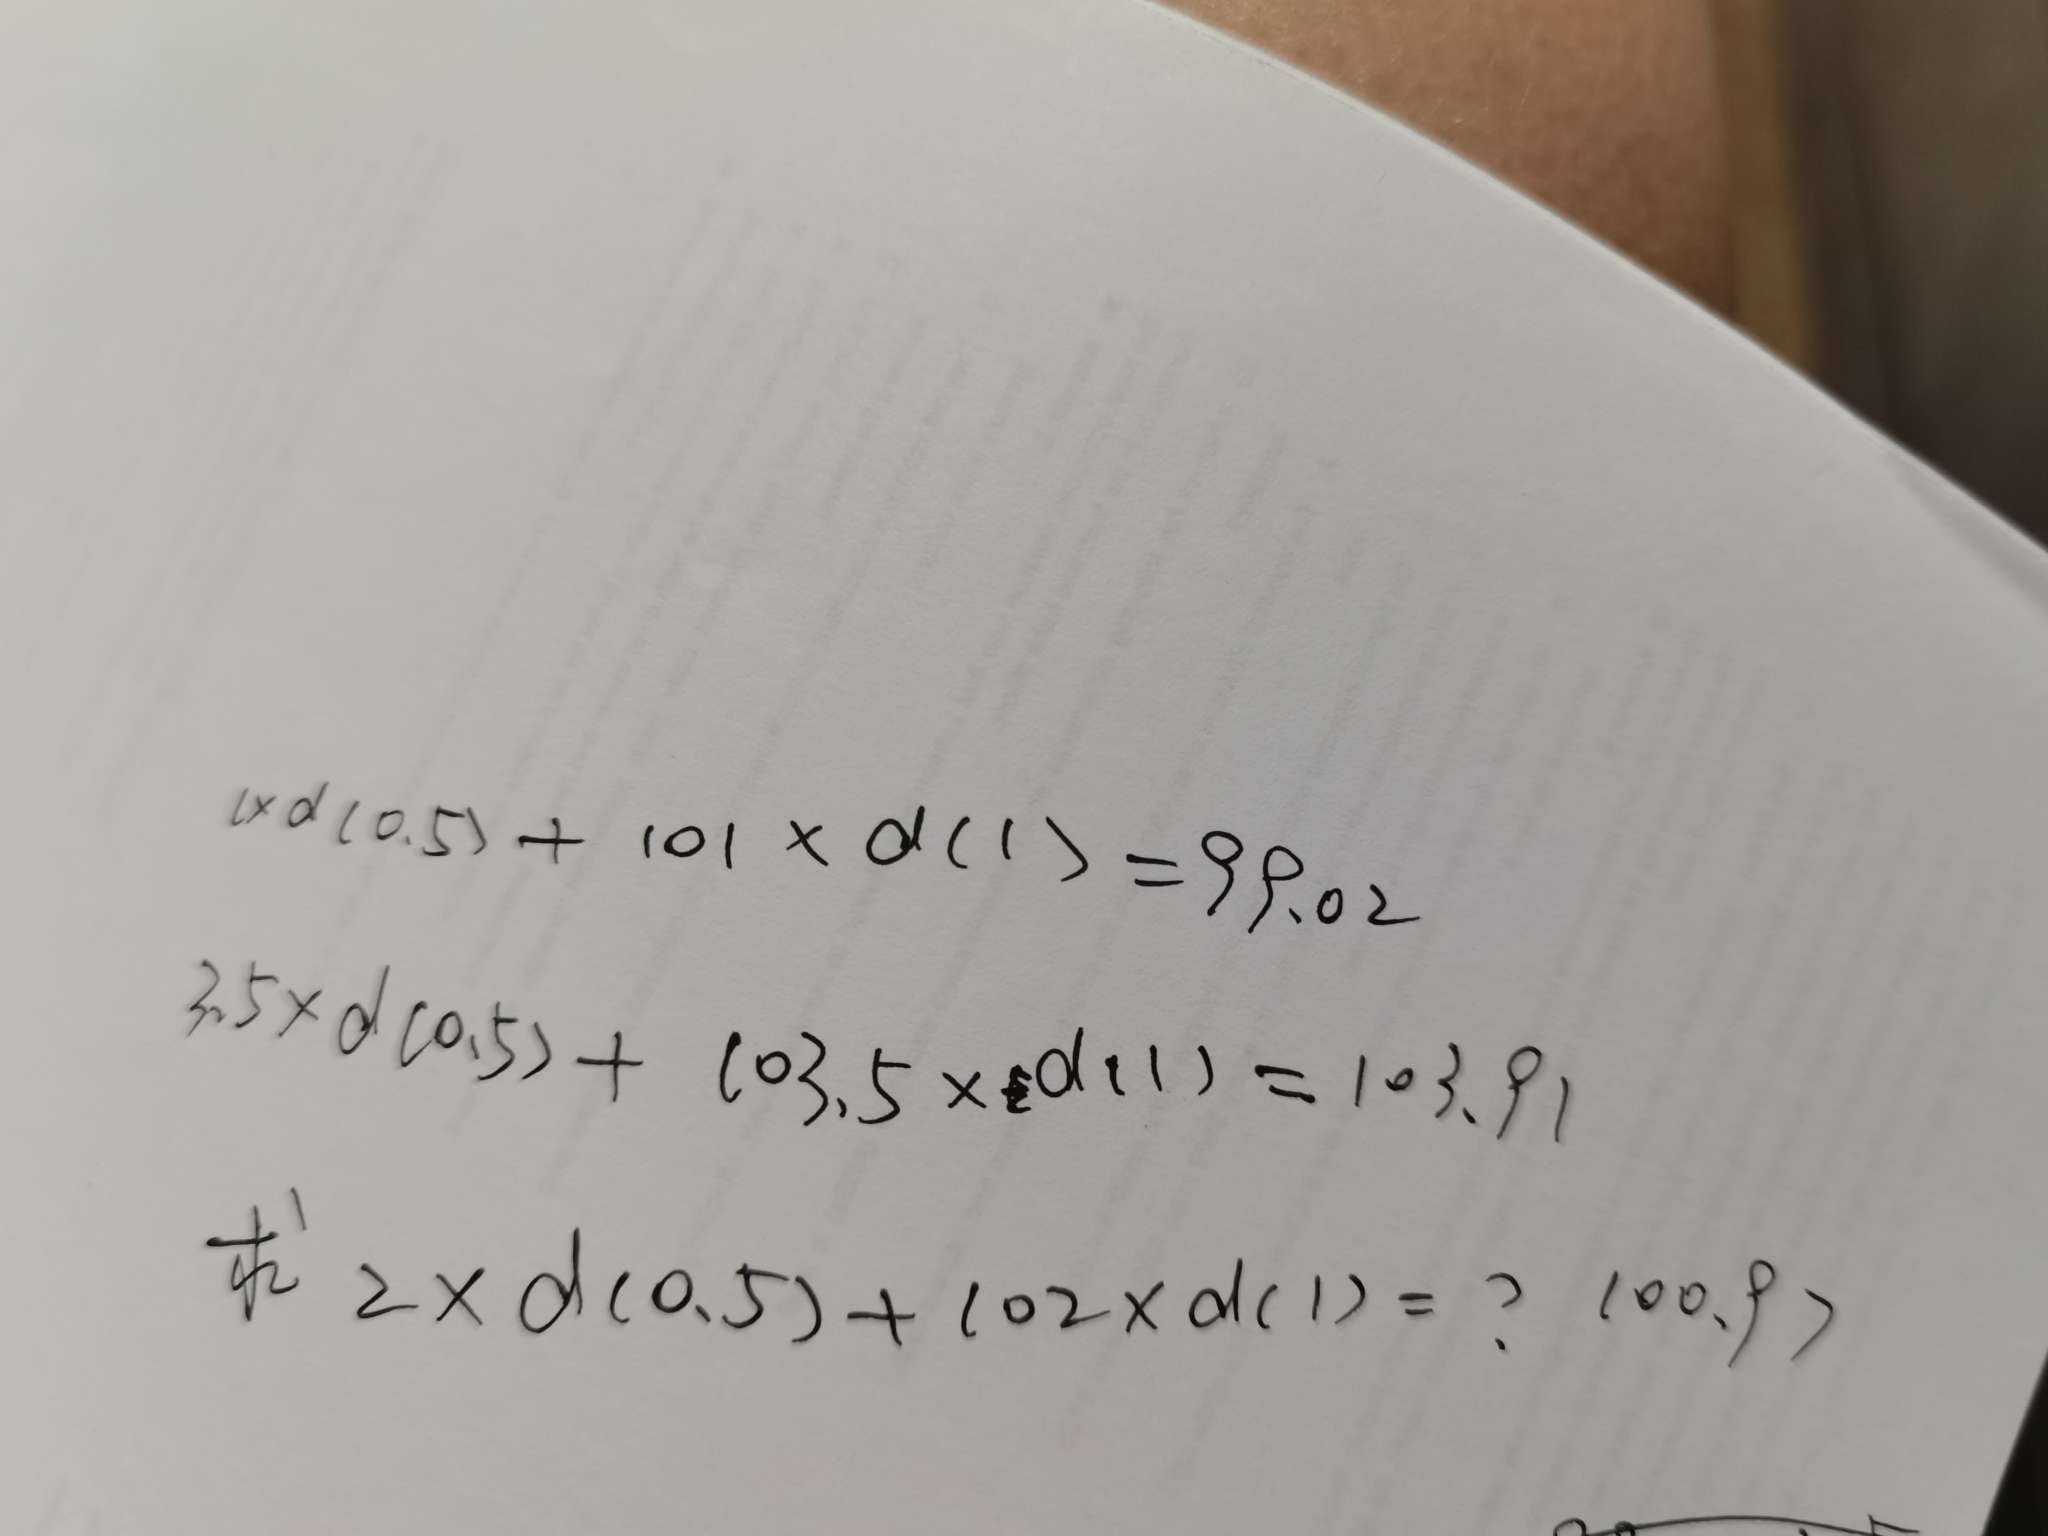 1×d(0.5) + 101 × d(1) = 99.02
3.5×d(0.5) + 103.5 × d(1) = 103.91
求 2×d(0.5) + 102×d(1) = ? 100.97